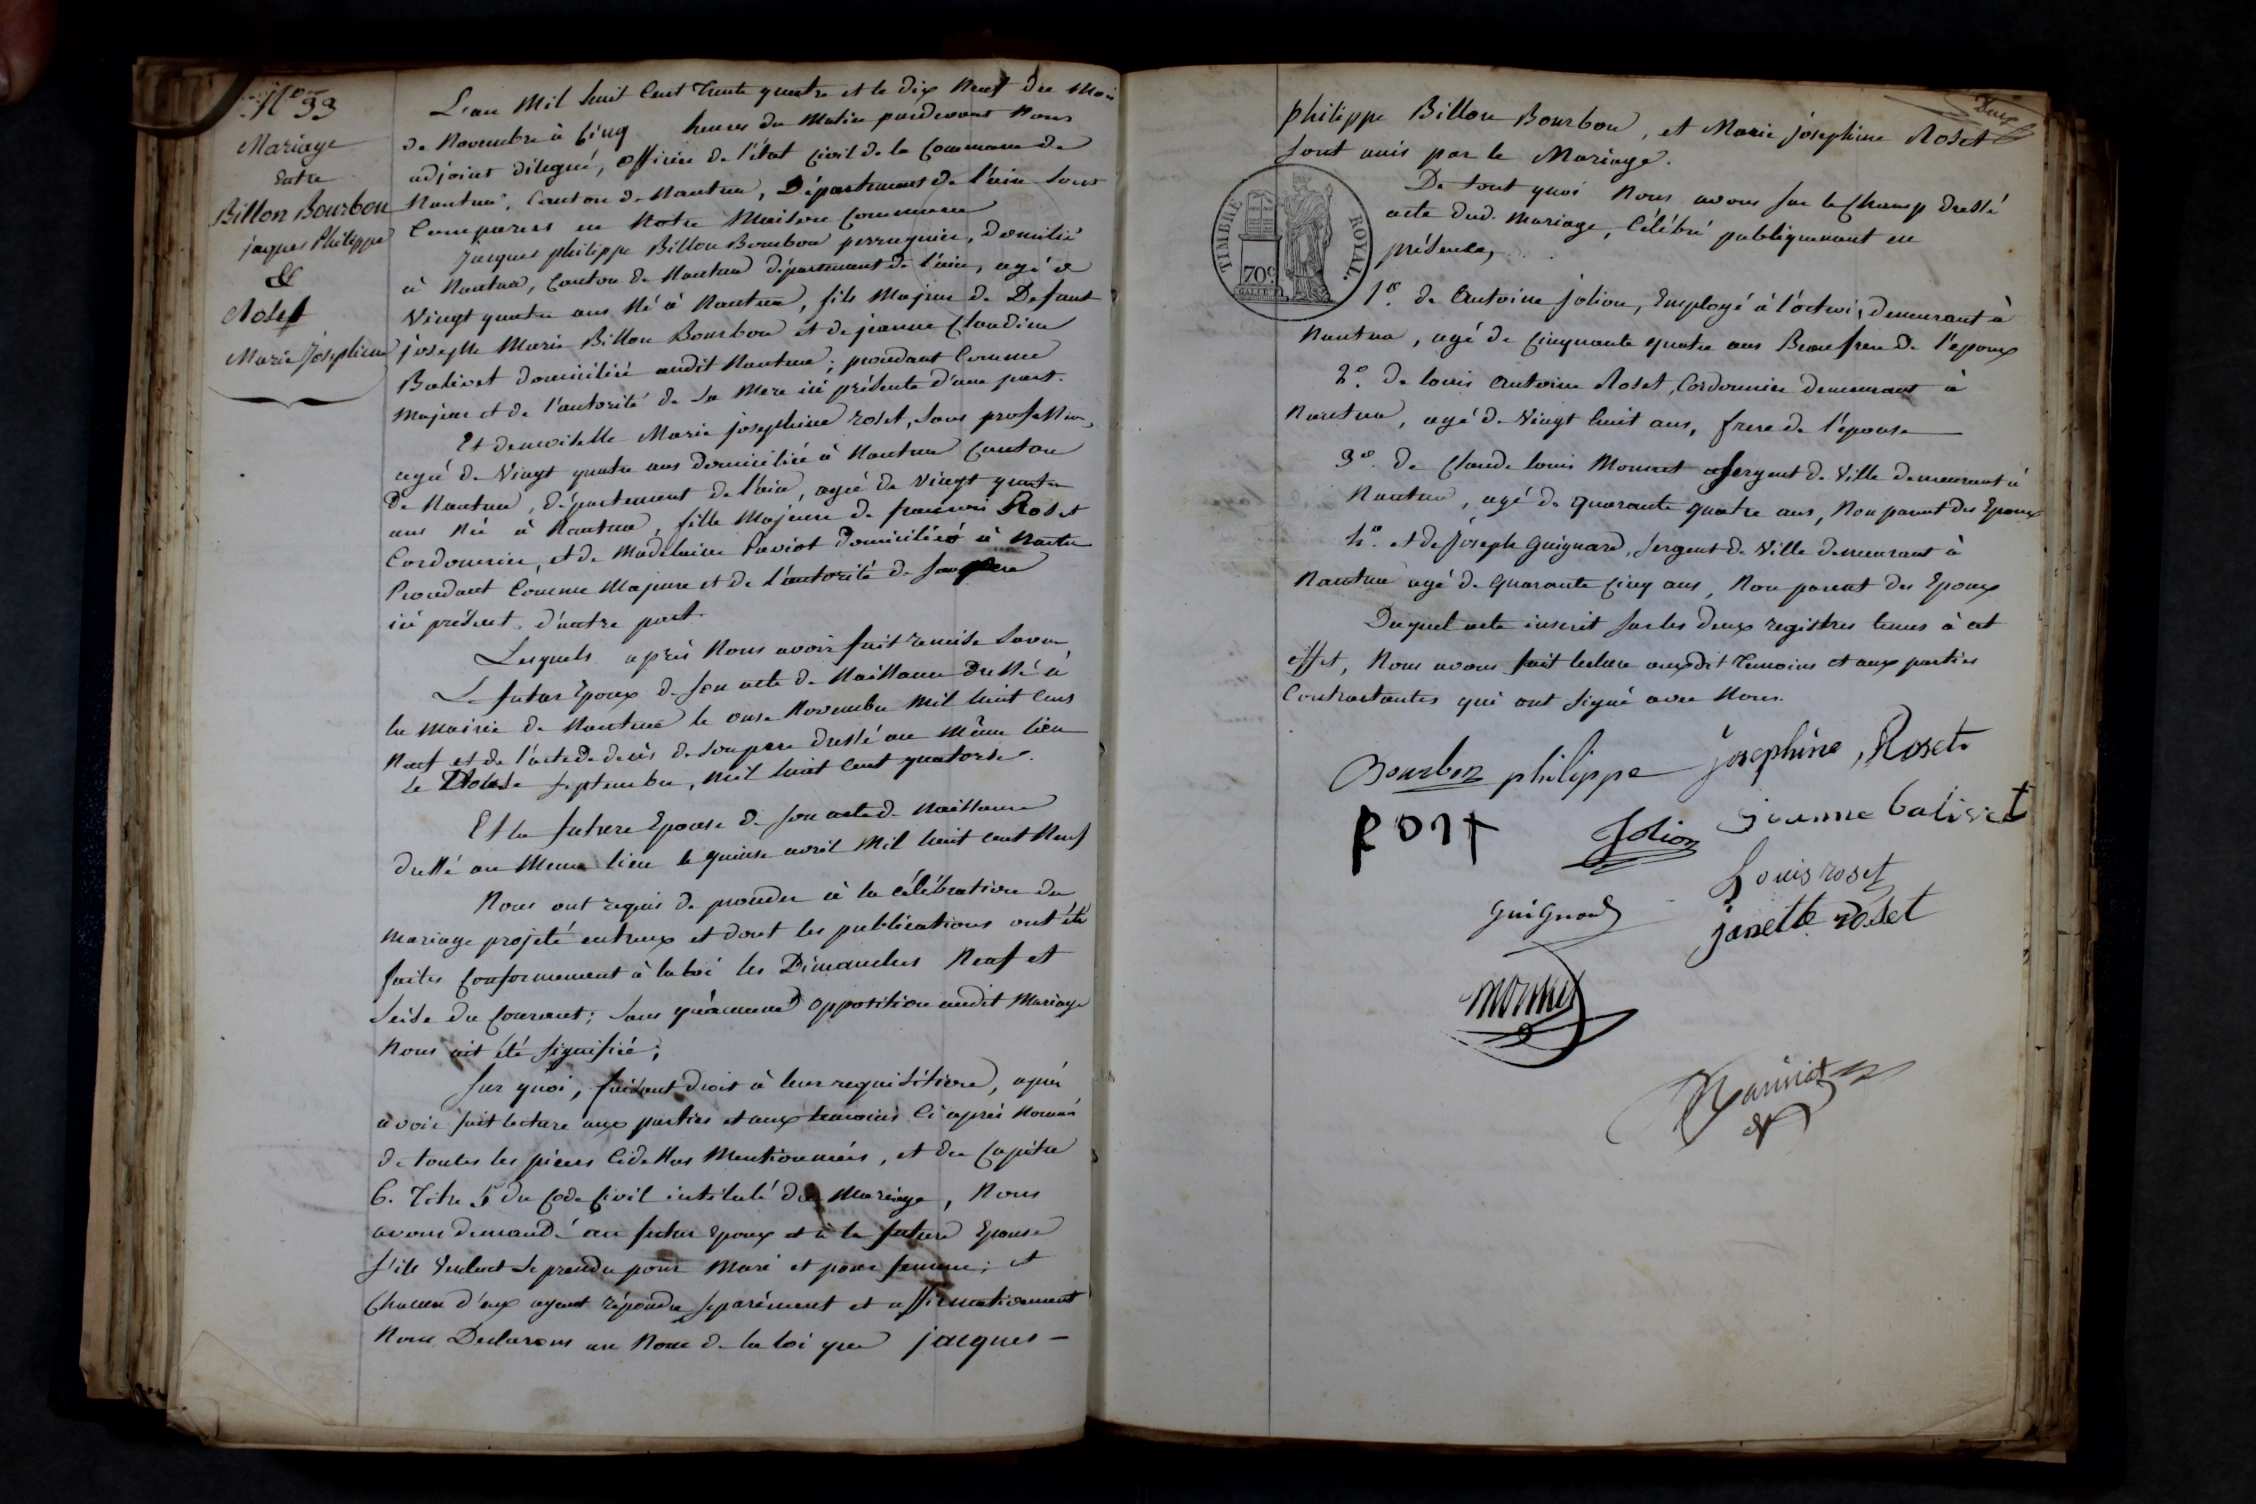 N° 33
Mariage
Entre
Billon Bourbon
jaques Philippe
&
Roset
Marie Joséphine
L'an Mil huit Cent Trente quatre et le dix Neuf du Mois
de Novembre à Cinq heures du Matin pardevant Nous
adjoint délégué, officier de l'état Civil de la Commune de
Nantua, Canton de Nantua, Département de l'ain Sont
Comparus en Notre Maison Commune
Jacques philippe Billon Bourbon perruquier, domicilié
à Nantua, Canton de Nantua département de l'ain, agé de
Vingt quatre ans Né à Nantua, fils Majeur de Defunt
joseph Marie Billon Bourbon et de jeanne Claudine
Balivet domiciliée audit Nantua; procédant Comme
Majeur et de l'autorité de Sa Mere ici présente d'une part.
Et demoiselle Marie josephine roset, Sans profession,
agée de Vingt quatre ans domiciliée à Nantua Canton
de Nantua, département de l'ain, agée de Vingt quatre
ans Née à Nantua, fille Majeure de francois Roset
Cordonnier, et de Madelaine Paviot domiciliés à Nantua
Procédant Comme Majeure et de l'autorité de Son pere
ici présent d'autre part.
Lesquels après Nous avoir fait remise Savoir
Le futur Epoux de Son acte de Naissance Dressé à
la Mairie de Nantua le onze Novembre Mil huit Cent
Neuf et de l'acte de decès de Son pere dressé au Même lieu
Le Douse Septembre, Mil huit Cent quatorse.
Et la future Epouse de Son acte de Naissance
dressé au Meme lieu le quinse avril Mil huit Cent Neuf
Nous ont requis de procéder à la célébration du
Mariage projeté entreux et dont les publications ont été
faites Conformement à la loi les Dimanches Neuf et
Seise du Courant; Sans qu'aucune opposition audit Mariage
Nous ait été Signifiée;
Sur quoi, faisant droit à leur requisitoire, après
avoir fait lecture aux parties et aux temoins Ci après Nommés
de toutes les pieces Cidessus Mentionnées, et du Capitre
6. Titre 5 du Code Civil intitulé du Mariage, Nous
avons demandé au futur Epoux et à la future Epouse
S'ils Veulent Se prendre pour Mari et pour femme; et
Chacun d'eux ayant répondu Separément et affirmativement
Nous Declarons au Nom de la loi que jacques —
Deux
philippe Billon Bourbon, et Marie josephine Roset
Sont unis par le Mariage.
De tout quoi Nous avons Sur le Champ dressé
acte dud. Mariage, Célébré publiquement en
présence,
TIMBRE ROYAL.
70c.
1o. de Antoine jolion, Employé à l'octroi, demeurant à
Nantua, agé de Cinquante quatre ans Beaufrere de l'epoux
2o. de louis antoine Roset, Cordonnier demeurant à
Nantua, agé de Vingt huit ans, frere de l'épouse
3o. de Claude louis Monnet Sergent de Ville demeurant à
Nantua, agé de quarante quatre ans, Non parent des Epoux
4o. et de Joseph Guignard, Sergent de Ville demeurant à
Nantua agé de quarante Cinq ans, Non parent des Epoux
Duquel acte inscrit Sur les deux registres tenus à cet
effet, Nous avons fait lecture auxdit temoins et aux parties
Contractantes qui ont Signé avec Nous.
Bourbon philippe josephine Roset
jeanne balivet
Jolion
Louis roset
Guignard
janette roset
monnet